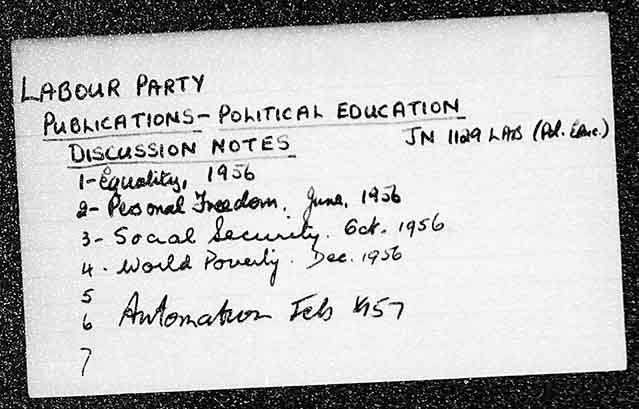 LABOUR PARTY
PUBLICATIONS - POLITICAL EDUCATION
DISCUSSION NOTES JN 1129 LAB (Pol. Educ.)
1 - Equality, 1956
2 - Personal Freedom. June, 1956
3 - Social Security. Oct. 1956
4. World Poverty. Dec. 1956
5
6 Automation Feb 1957
7